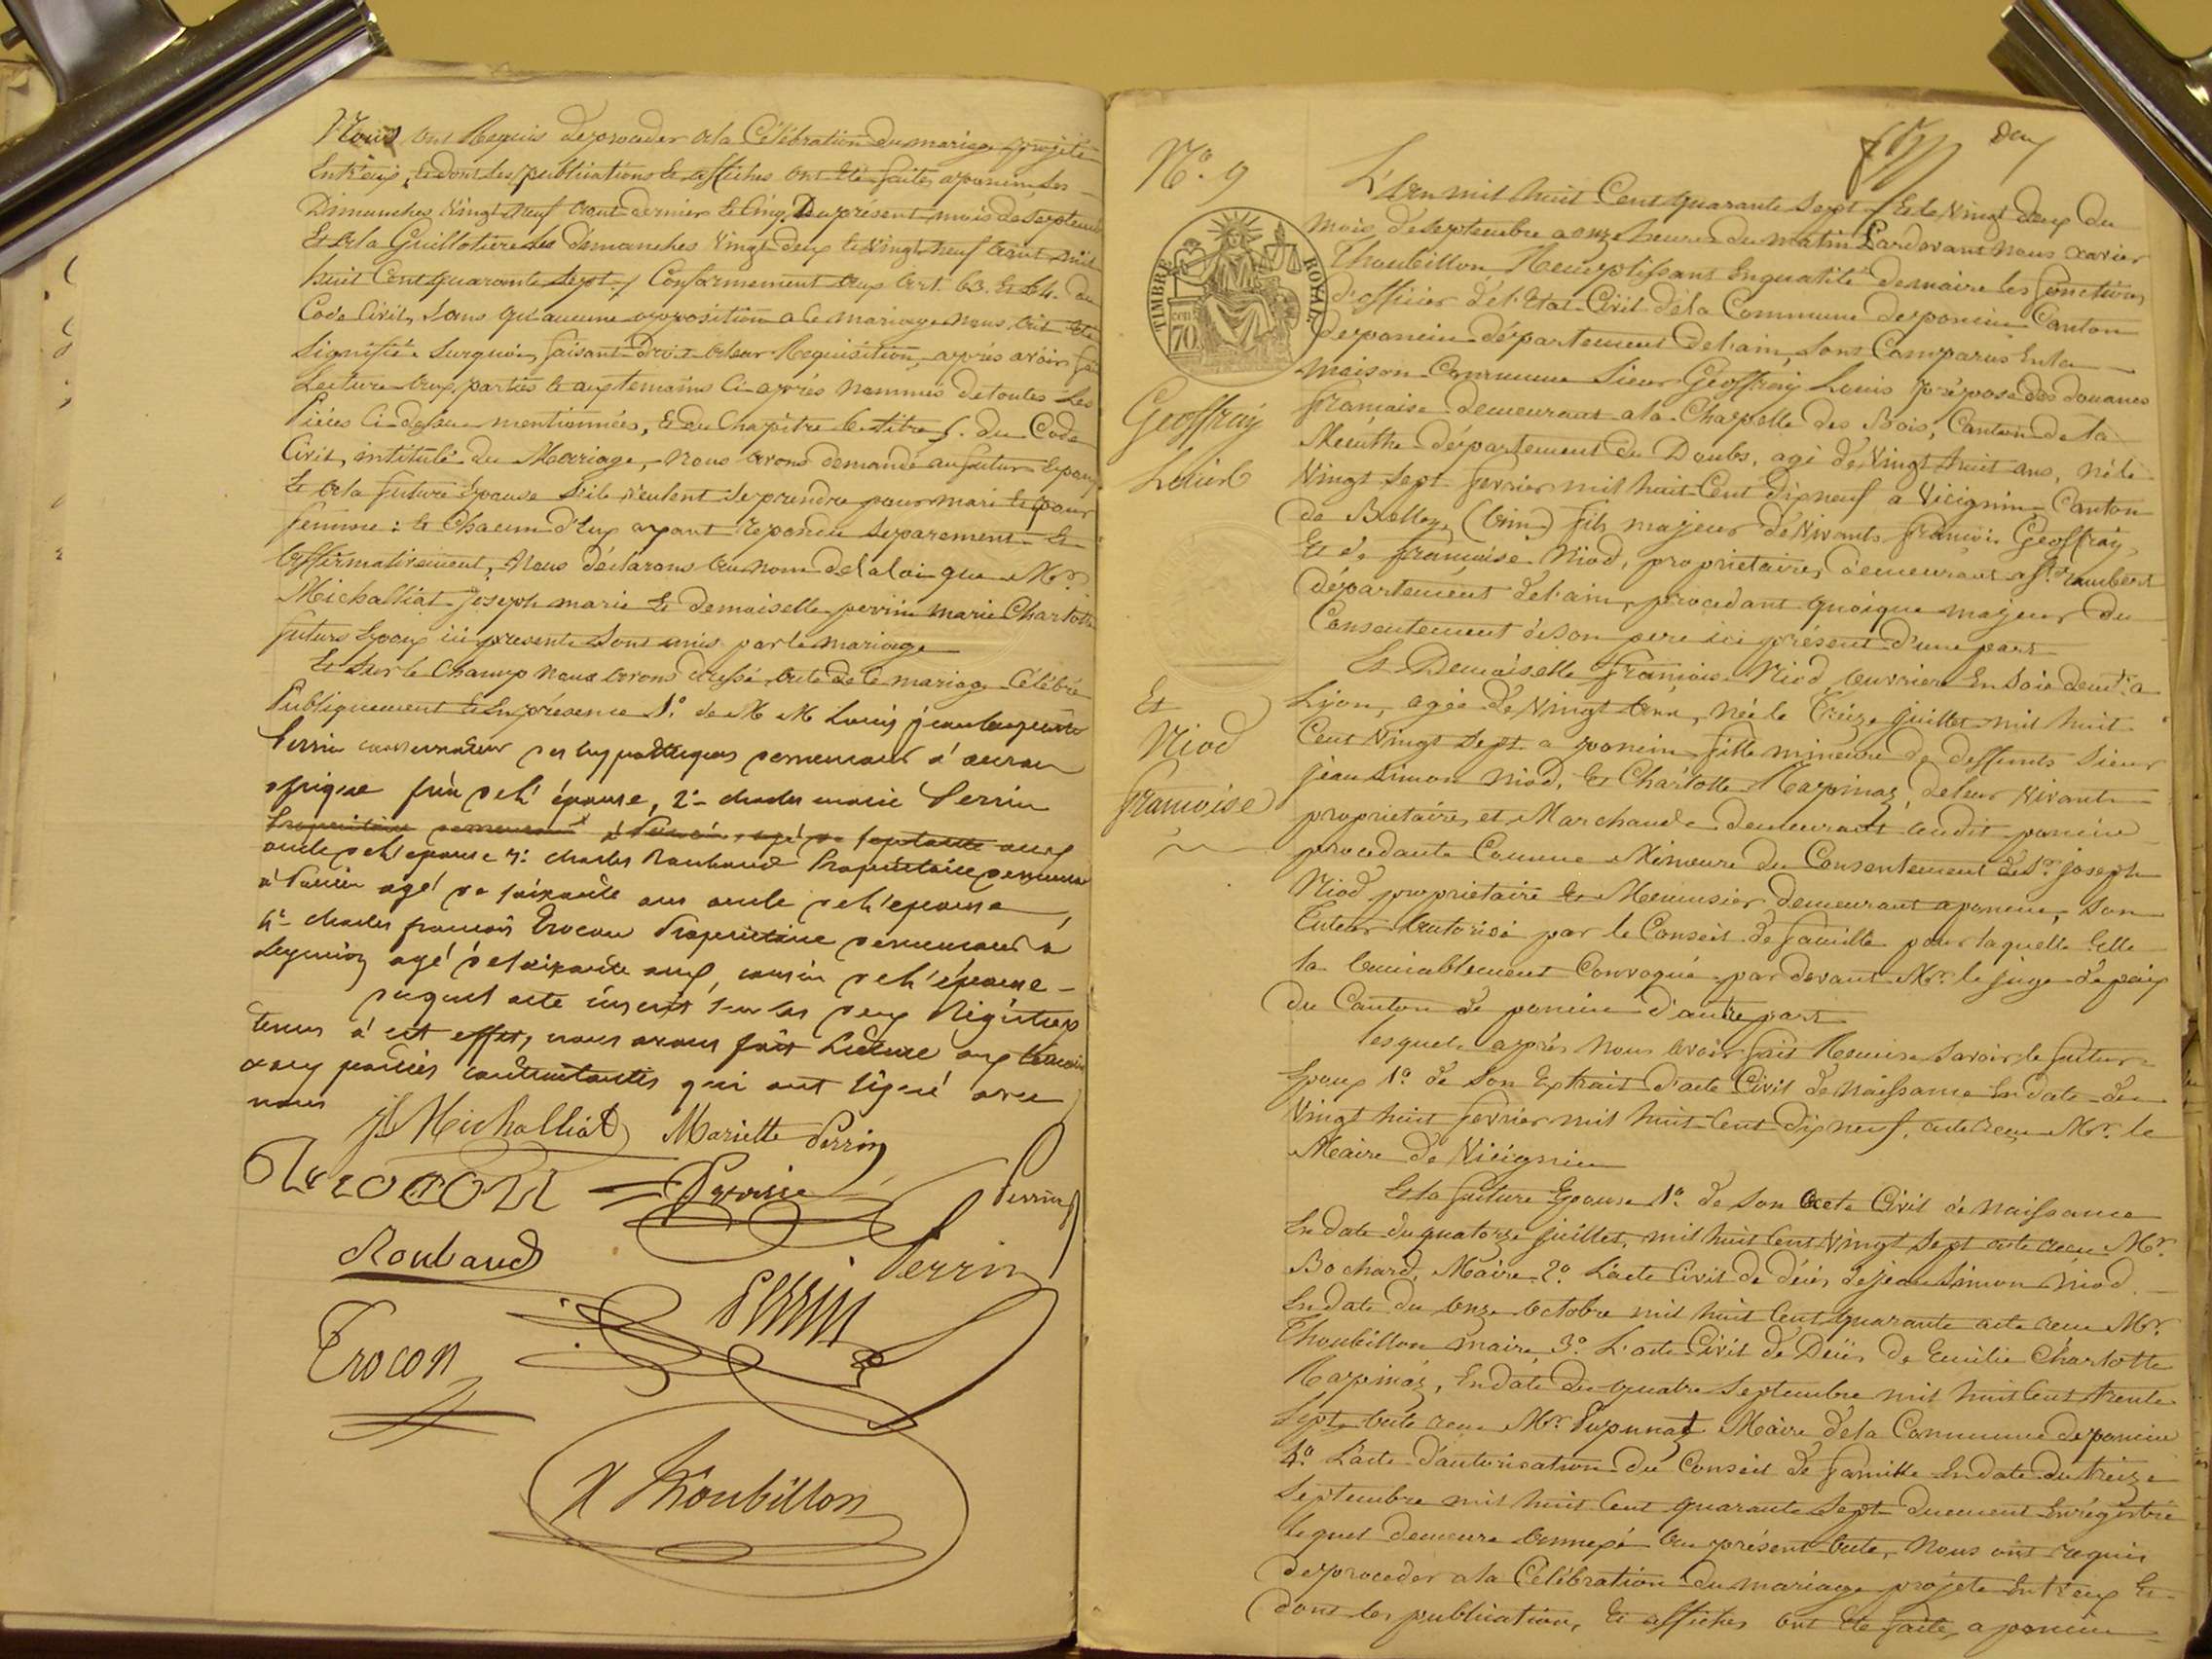 Nous ont Requis de proceder a la Célébration du mariage projeté
Entr'eux, et dont les publications et affiches ont été faites a poncin, les
Dimanches Vingt neuf août dernier et Cinq Du présent mois de Septembre
Et a la Guillotière les dimanches Vingt deux et Vingt neuf août mil
huit Cent quarante Sept / Conformement aux Art. 63. et 64. du
Code Civil, Sans qu'aucune opposition a ce mariage nous ait été
Signifiée Surquoi, faisant droit a leur Requisition, après avoir fait
Lecture aux parties et aux temoins ci-après nommés de toutes les
Pièces Ci-dessus mentionnées, et du Chapitre 6 titre 5. du Code
Civil, intitulé du Mariage, nous avons demandé au futur Epoux
Et a la future épouse S'ils veulent se prendre pour mari et pour
femme : et Chacun d'Eux ayant repondu Separement et
Affirmativement, Nous déclarons au nom de la loi que Mr
Michalliat Joseph marie et demoiselle perrin marie Charlotte
futurs Epoux ici presents Sont unis par le mariage
Et Sur le Champ nous avons dressé acte de ce mariage Célébré
Publiquement et en présence 1.° de M M Louis jean
Perrin conservateur des hypothèques demeurant à
afrique frère de l'épouse, 2° charles marie Perrin
Propriétaire demeurant à Poncin, agé de septante ans
oncle de l'epouse 3° charles Roubaud Propriétaire demeurant
à Poncin agé de soixante ans oncle de l'epouse,
4° charles françois Trocon Propriétaire demeurant à
agé de soixante ans, cousin de l'épouse -
duquel acte inscrit sur les deux Régistres
tenus à cet effet, nous avons fait Lecture aux témoins
aux parties contractantes qui ont signé avec
nous
Michalliat Mariette Perrin
Perrin
Roubaud
Perrin
Perrin
Trocon
X Thoubillon
N° 9
deux
TIMBRE ROYAL
70
Geoffray
Louis
Et
Niod
françoise
L'an mil huit Cent quarante Sept / Et le Vingt deux du
Mois de Septembre a onze heures du matin Pardevant nous xavier
Thoubillon Remplissant En qualité de maire les fonctions
d'officier de l'Etat Civil de la Commune de poncin Canton
de poncin département de l'ain, Sont Comparus En la
maison Commune Sieur Geoffray Louis préposé des douanes
française demeurant a la Chapelle des Bois, Canton de la
Meuthe département du Doubs, agé de Vingt huit ans, né le
Vingt Sept fevrier mil huit Cent dix neuf a Virignin Canton
de Belley (Ain) fils majeur de Vivants françois Geoffray
Et de françoise Niod, proprietaires, demeurant a St. rambert
département de l'ain, procedant quoique majeur du
Consentement de son pere ici présent d'une part
Et Demoiselle françoise Niod, ouvrière En Soie demt. a
Lyon, agée de Vingt ans, née le treize juillet mil huit
Cent Vingt Sept a poncin fille mineure de deffunts Sieur
jean Simon Niod, Et Charlotte Rapinaz, de leur Vivants
proprietaires et Marchands demeurants audit poncin
procedante Comme Mineure du Consentement de Sr. joseph
Niod proprietaire et Menuisier demeurant a poncin, Son
Tuteur Autorisé par le Conseil de famille pour laquelle Elle
la amiablement Convoqué par devant Mr. le juge de paix
du Canton de poncin d'autre part
lesquels après Nous avoir fait Remise Savoir le futur
Epoux 1.° de Son Extrait d'acte Civil de naissance En date du
Vingt huit fevrier mil huit Cent dix neuf, acte reçu Mr. le
Maire de Virignin
Et la future Epouse 1.° de Son Acte Civil de Naissance
En date du quatorze juillet, mil huit Cent Vingt Sept acte reçu Mr.
Bochard, Maire 2.° L'acte Civil de décès de jean Simon Niod
En date du onze octobre mil huit Cent quarante acte reçu Mr.
Thoubillon maire 3.° L'acte Civil de Décès de Emilie Charlotte
Rapinaz, En date du quatre Septembre mil huit Cent trente
Sept, acte reçu Mr. Maire de la Commune de poncin
4.° L'acte d'autorisation du Conseil de famille En date du treize
Septembre mil huit Cent quarante Sept duement Enregistré
lequel demeure annexé au présent acte, Nous ont requis
de proceder a la Célébration du mariage projeté Entr'eux Et
dont les publication, Et affiches ont été faite, a poncin